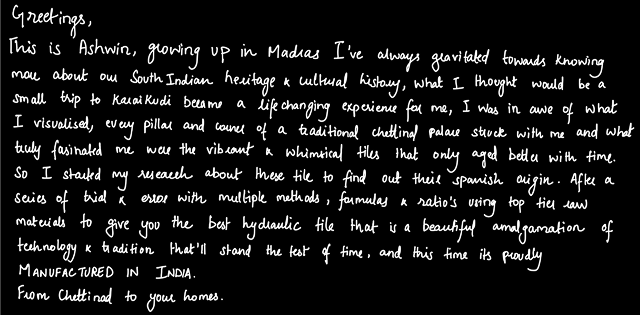 Greetings,
This is Ashwin, growing up in Madras I've always gravitated towards knowing
more about our South Indian heritage & cultural history, what I thought would be a
small trip to Karaikudi became a life changing experience for me, I was in awe of what
I visualised, every pillar and corner of a traditional chettinad palace stuck with me and what
truly fasinated me were the vibrant & whimsical tiles that only aged better with time.
So I started my research about these tile to find out their spanish origin. After a
series of trial & error with multiple methods, formulas & ratio's using top tier raw
materials to give you the best hydraulic tile that is a beautiful amalgamation of
technology & tradition that'll stand the test of time, and this time its proudly
MANUFACTURED IN INDIA.
From Chettinad to your homes.